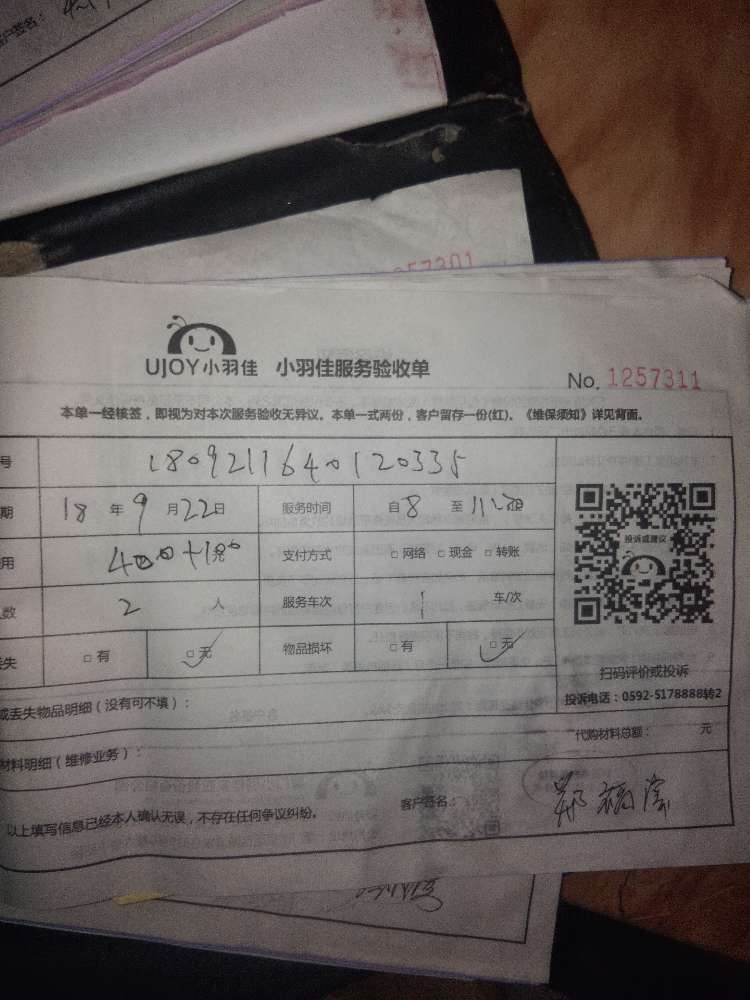 客户签名：
1257301
UJOY小羽佳 小羽佳服务验收单
No. 1257311
本单一经核签，即视为对本次服务验收无异议。本单一式两份，客户留存一份(红)。《维保须知》详见背面。
号 1809211640120335
期 18 年 9 月 22 日 服务时间 自 8 至 11
用 400+100 支付方式 □ 网络 □ 现金 □ 转账
投诉或建议
数 2 人 服务车次 1 车/次
丢失 □ 有 □ 无 物品损坏 □ 有 □ 无
扫码评价或投诉
投诉电话：0592-5178888转2
或丢失物品明细（没有可不填）：
代购材料总额： 元
材料明细（维修业务）：
以上填写信息已经本人确认无误，不存在任何争议纠纷。
客户签名：